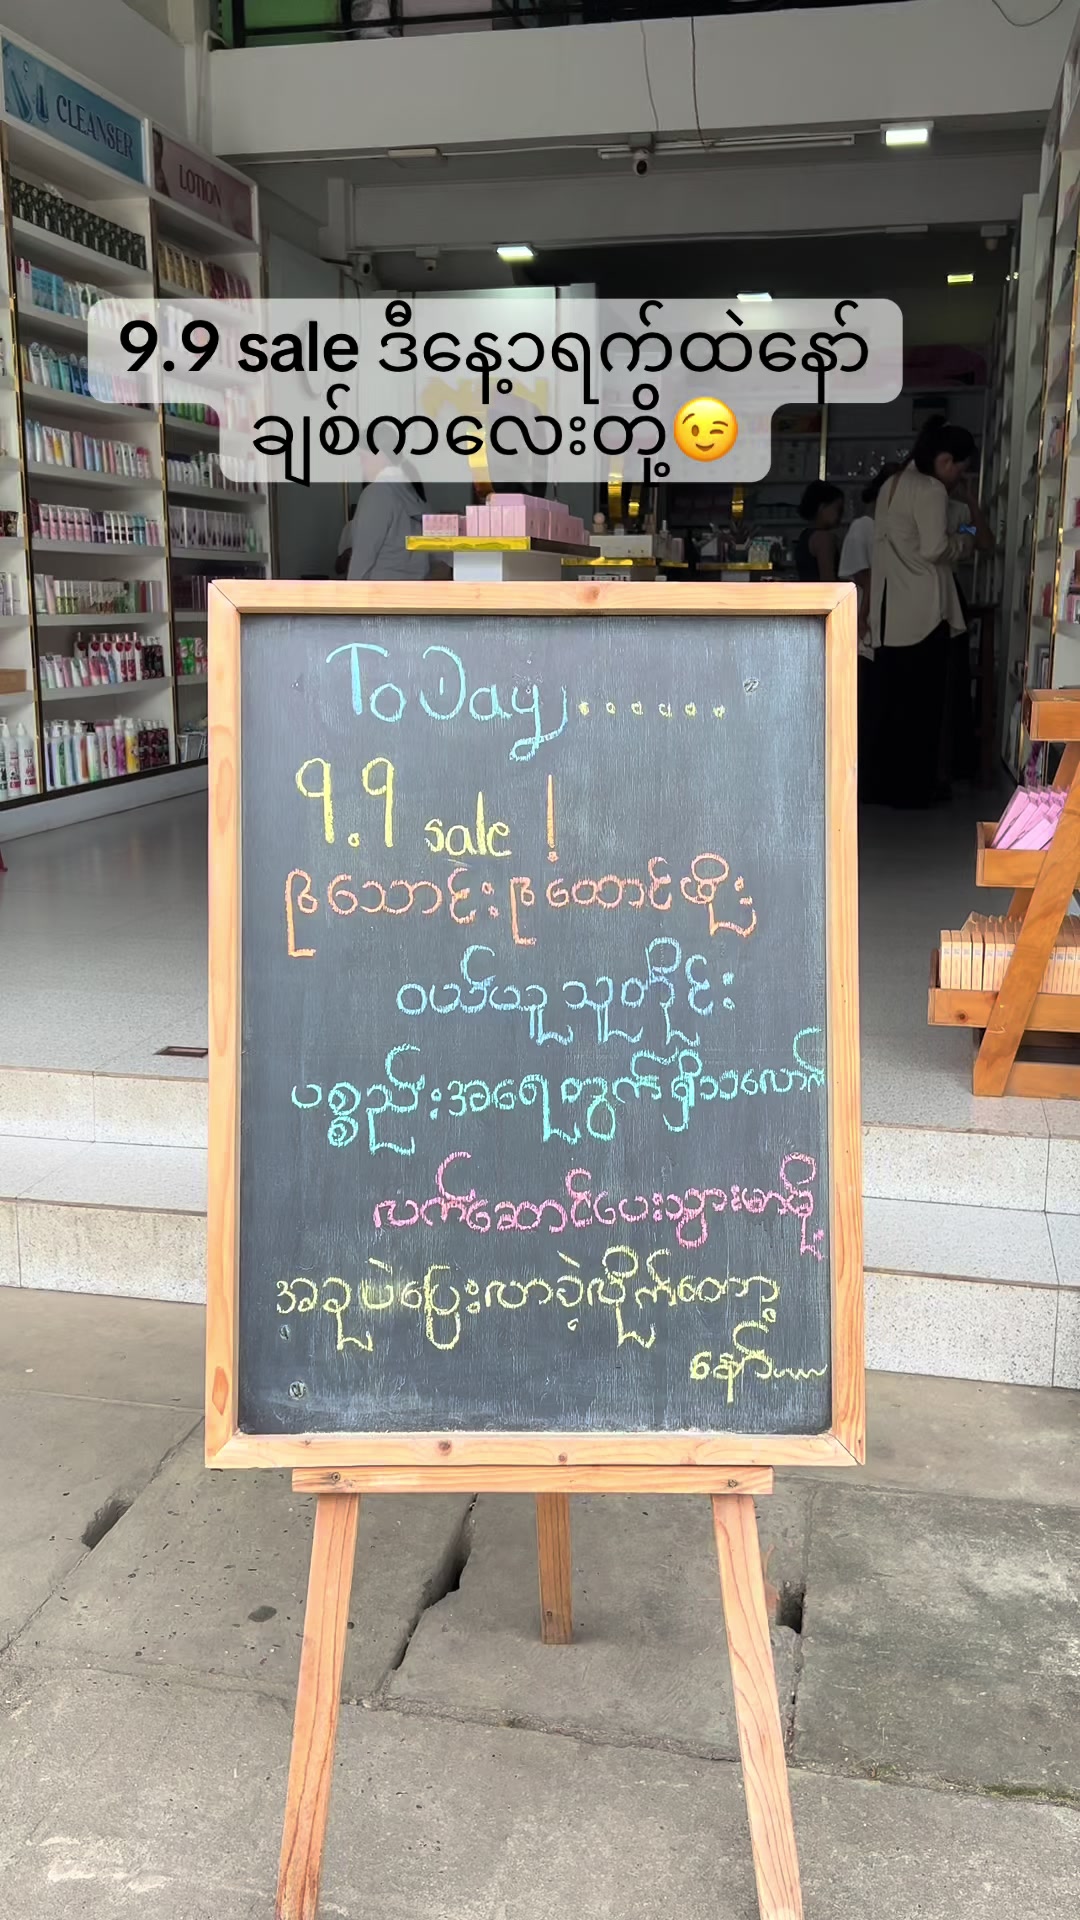 CLEANSER
LOTION
9.9 sale ဒီနေ့၁ရက်ထဲနော်
ချစ်ကလေးတို့😉
ToDay.......
9.9 sale !
၉သောင်း၉ထောင်ဖိုး
ဝယ်ယူသူတိုင်း
ပစ္စည်းအရေတွက်ရှိသလောက်
လက်ဆောင်ပေးသွားမာမို့
အခုပဲပြေးလာခဲ့လိုက်တော့
နော်....